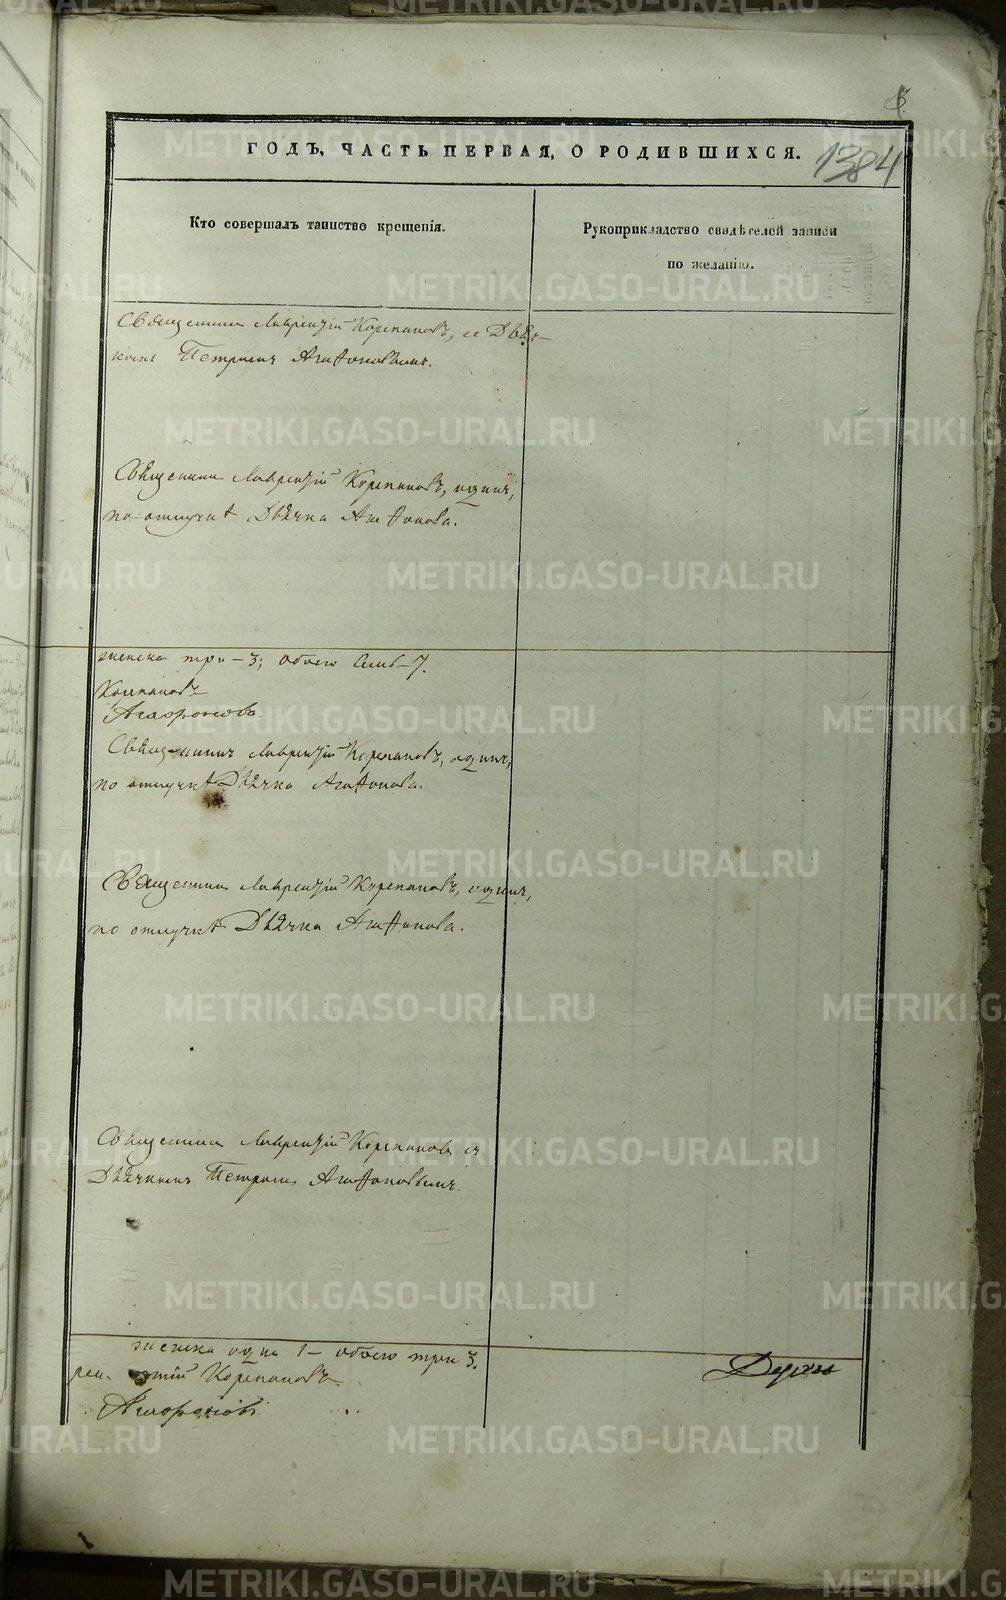 5.
ГОДЪ, ЧАСТЬ ПЕРВАЯ, О РОДИВШИХСЯ.
1384
Кто совершалъ таинство крещенія.
Рукоприкладство свидѣтелей записи
по желанію.
Священникъ Лаврентій Корепановъ, съ Дьяч-
комъ Петромъ Агаѳоновымъ.
Священникъ Лаврентій Корепановъ, одинъ,
по отлучкѣ Дьячка Агаѳонова.
женска три - 3; обоего семь - 7.
Корепановъ
Агафоновъ.
Священникъ Лаврентій Корепановъ, одинъ,
по отлучкѣ Дьячка Агаѳонова.
Священникъ Лаврентій Корепановъ, одинъ,
по отлучкѣ Дьячка Агаѳонова.
Священникъ Лаврентій Корепановъ съ
Дьячкомъ Петромъ Агаѳоновымъ.
женска одна 1 - обоего три 3.
Корепановъ
Агафоновъ.
METRIKI.GASO-URAL.RU